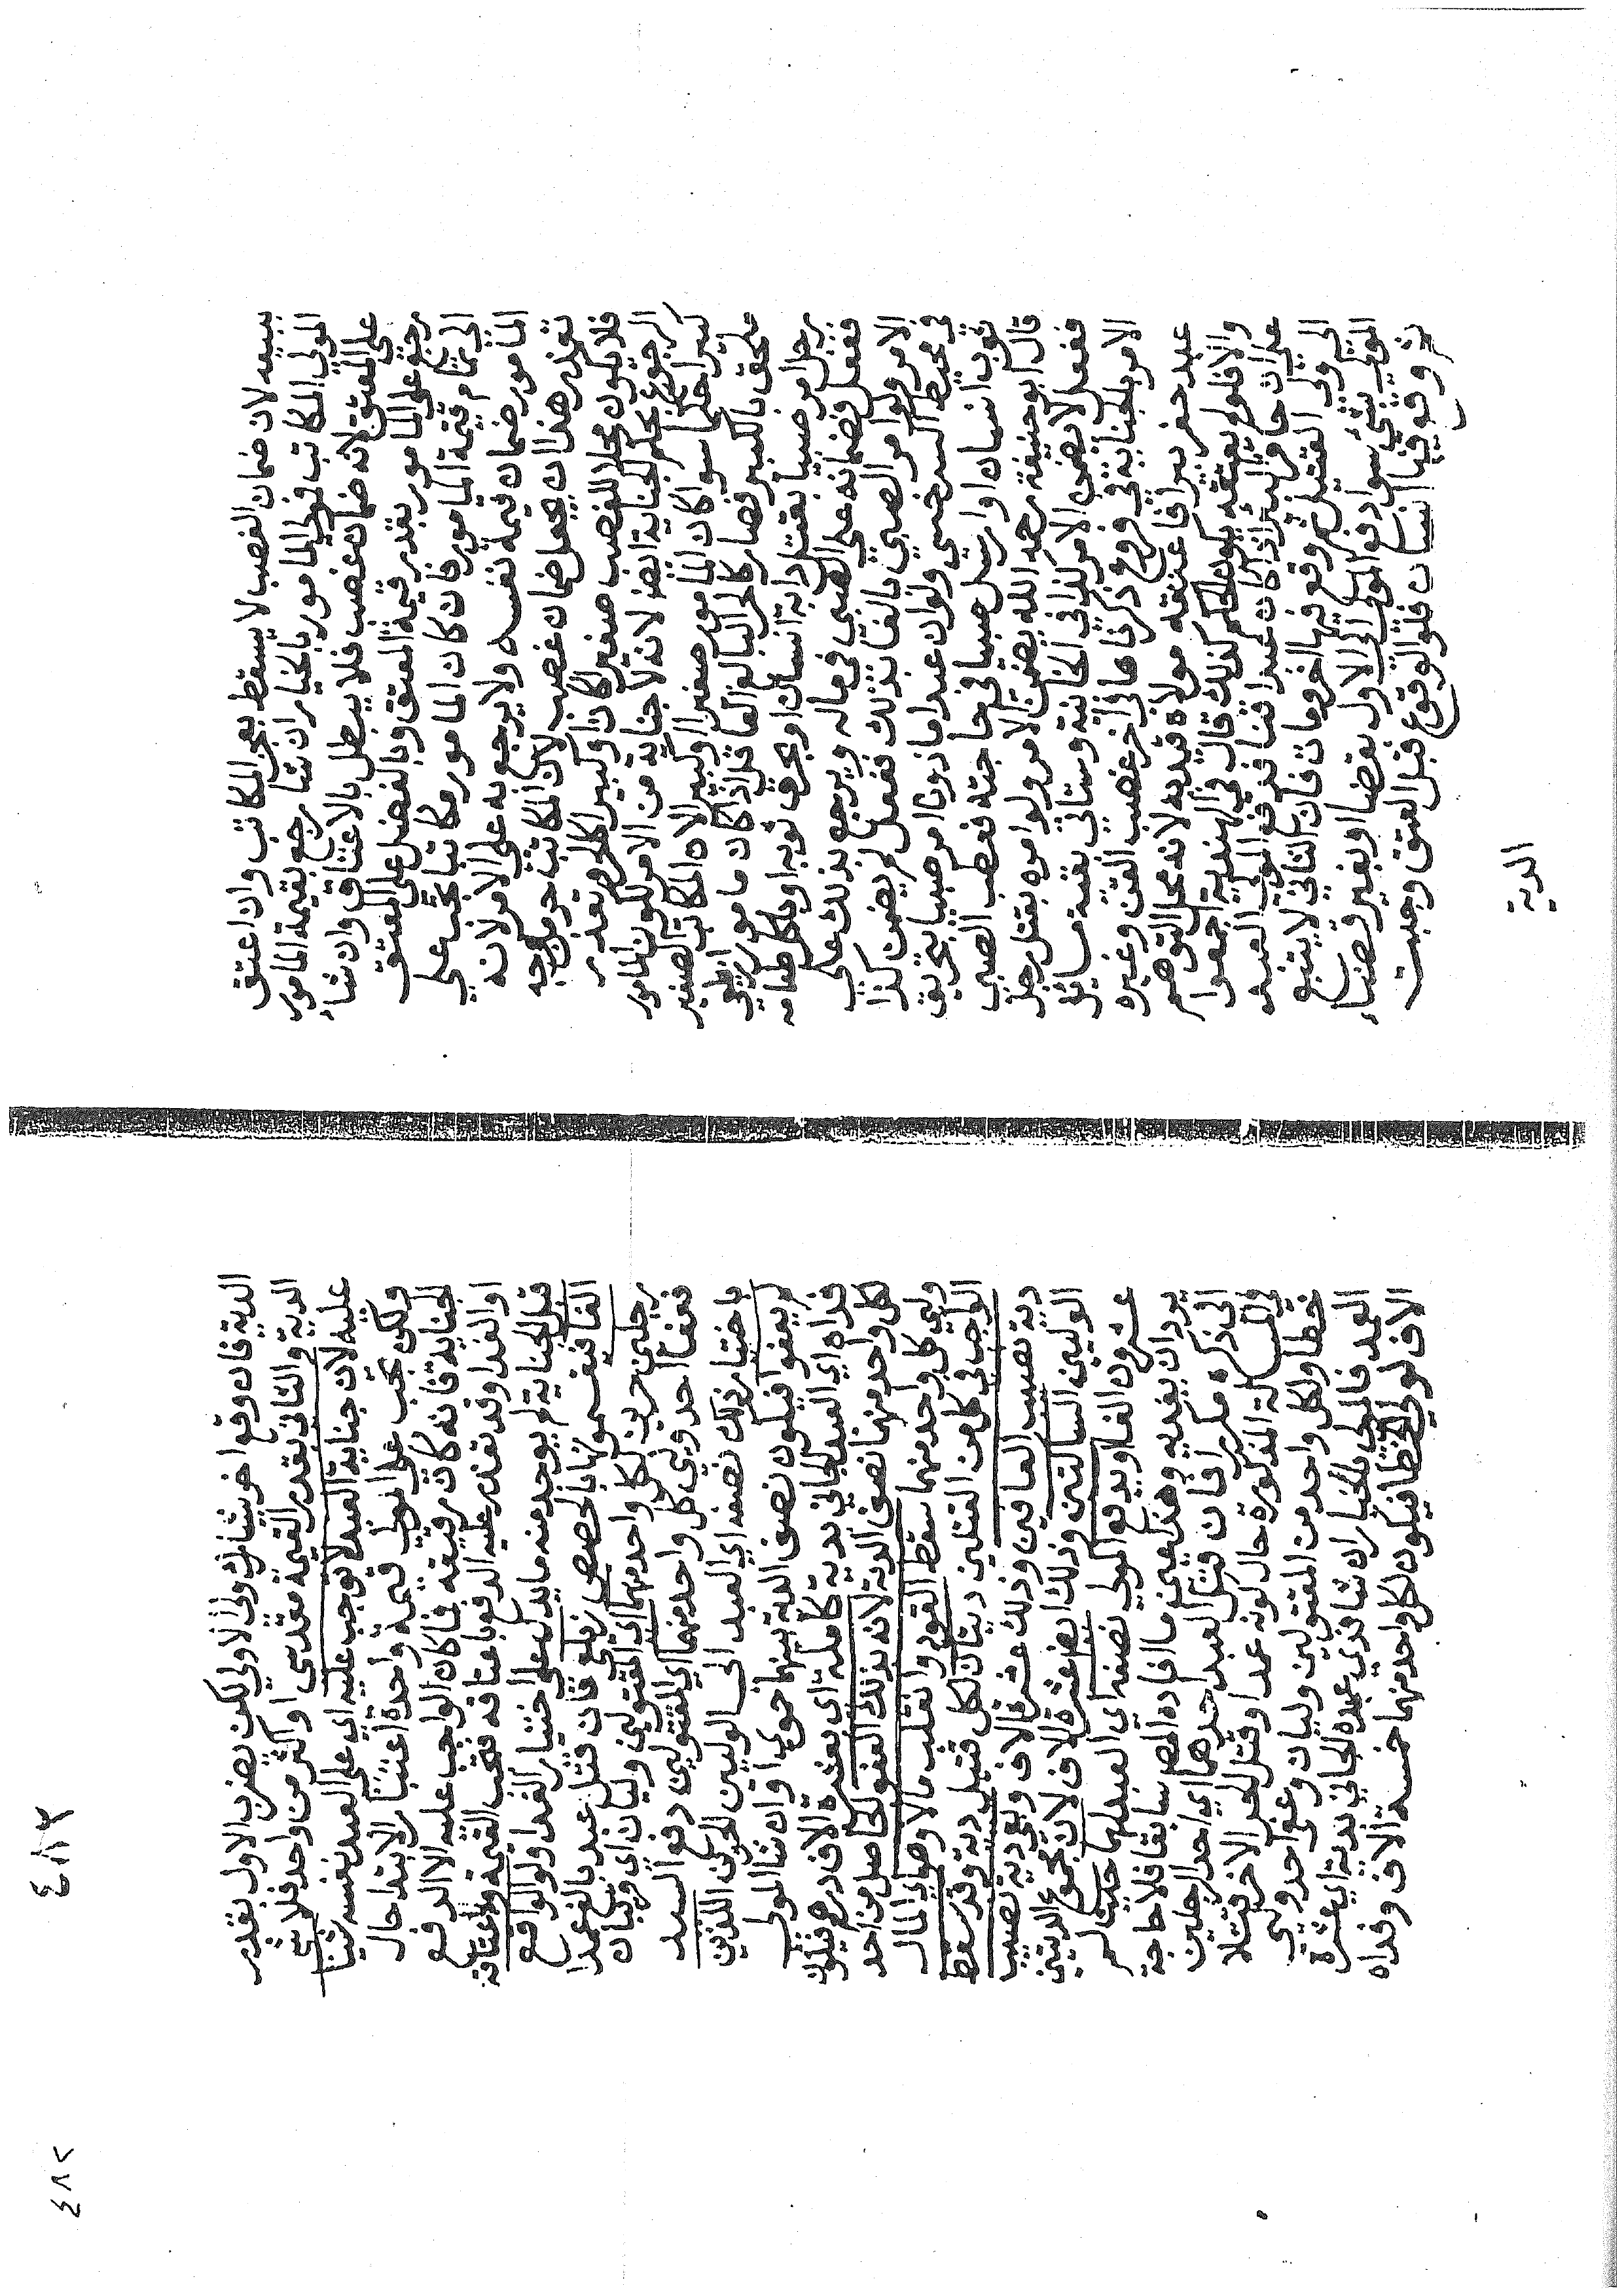 ببيعه لان ضمان الغصب لا يسقط بعجز المكاتب وان اعتق
المولى المكاتب فولي المامور بالخيار ان شا رجع بقيمة المامور
على المعتق لانه ضمان غصب فلا يبطل بالاعتاق وان شاء
رجع على المامور بقدر قيمة المعتق وبالفضل على المعتق
الى تمام قيمة المامور فان كان المامور مكاتبا يجب على
المامور ضمان قيمة نفسه ولا يرجع به على الامر لانه
تعذر هذا ان يجعل ضمان غصب لان المكاتب حر من وجه
فلا يكون محلا للغصب صغيرا كان او كبيرا كالحر وتعذر
الرجوع بحكم الجناية ايضا لانه لا جناية من الامر لكون المامور
كبيرا حكما سوا كان المامور صغيرا او كبيرا لان المكاتب الصغير
ملحق بالكبير فصار كالحر البالغ العاقل اذا كان مامورا زيلعي
رجل امر صبيا بقتل دابة انسان او بخرق ثوبه او باكل طعامه
ففعل فضمانه على الصبي في ماله ويرجع بذلك على
الامر ولو امر الصبي بالغا بذلك ففعل لم يضمن كذا
في محيط السرخسي ولو ان عبدا ماذونا امر صبيا بتخريق
ثوب انسان او ارسل صبيا في حاجته فعطب الصبي
قال ابو حنيفة رحمه الله يضمن الامر ولو امره بقتل رجل
ففعل لا يضمن الامر كذا في الخانية وستاتي بقية مسائل
الامر بالجناية في فروع ذكرناها في اخر غصب القن وغيره
عبد حفر بيرا فاعتقه مولاه قيد به لانه محل التوهم
والا فلو لم يعتقه يكون الحكم كذلك قال في الهندية اجمعوا
على ان حافر البئر اذا كان عبدا قنا فدفع المولى العبد
الى ولي القتيل ثم وقع فيها اخر ومات فان الثاني لا يتبع
المولى بشي سوا دفع المولى الى الاول بقضا او بغير قضاء
ثم وقع فيها انسان فلو الوقوع قبل العتق وجبت
الدية
٤٨٣
الدية فان وقع اخر يشارك ولي الاولى لكن يضرب الاول بقدر
الدية والثاني بقدر القيمة مقدسي او اكثر من واحد فلا شي
عليه لان جناية العبد لا توجب عليه اي على العبد نفسه شيئا
ولكن تجب على المولى قيمة واحدة اعتبار الابتدا حال
الجناية فانه كان رقيقه فما كان الواجب عليه الا الدفع
او الفدا وقد تعذر عليه الدفع باعتاقه فتجب القيمة واعتاقه
قبل الجناية لم يوجد منه ما يدل على اختيار الفدا ولو الواقع
الفا فتقسمونها بالحصص زيلعي فان قتل عبد بالغ عمدا
رجلين حرين لكل واحد منهما اي المقتولين وليان اي قريبان
فعفا احد وليي كل واحد منهما اي المقتولين دفع السيد
باختيار ذلك نصفه اي العبد الى الوليين الحرين اللذين
لم يعفوا فيكون نصف الدية بينهما حموي او ان شا المولى
فداه اي العبد الجاني بدية كاملة اي بعشرة الاف درهم فيكون
لكل واحد منهما نصف الدية لانه بذلك العفو الحاصل من احد
وليي كل واحد منهما سقط القود وانقلب مالا وصار المال
الواجب في كل من القتلين ديتان لكل قتيل دية وقد سقط
دية نصيب العافين وذلك عشرة الاف وبقي دية نصيب
الوليين الساكتين وذلك ايضا عشرة الاف لان مجموع الديتين
عشرون الفا ويدفع المولى نصفه اي العبد لهما حيث لم
يرد ان يفديه وهذا عين ما افاده المصر سابقا فلا حاجة
الى ذكره مكررا فان قتل العبد احدهما اي احد الرجلين
في المسالة المذكورة حال كونه عمدا وقتل الحر الاخر قتلا
خطا ولكل واحد من المقتولين وليان وعفى احد وليي
العمد فالمولى بالخيار ان شا فدى عبده الجاني بدية اي عشرة
الاف لولي الخطا فيكون لكل واحد منهما خمسة الاف وفداه
٤٨٢